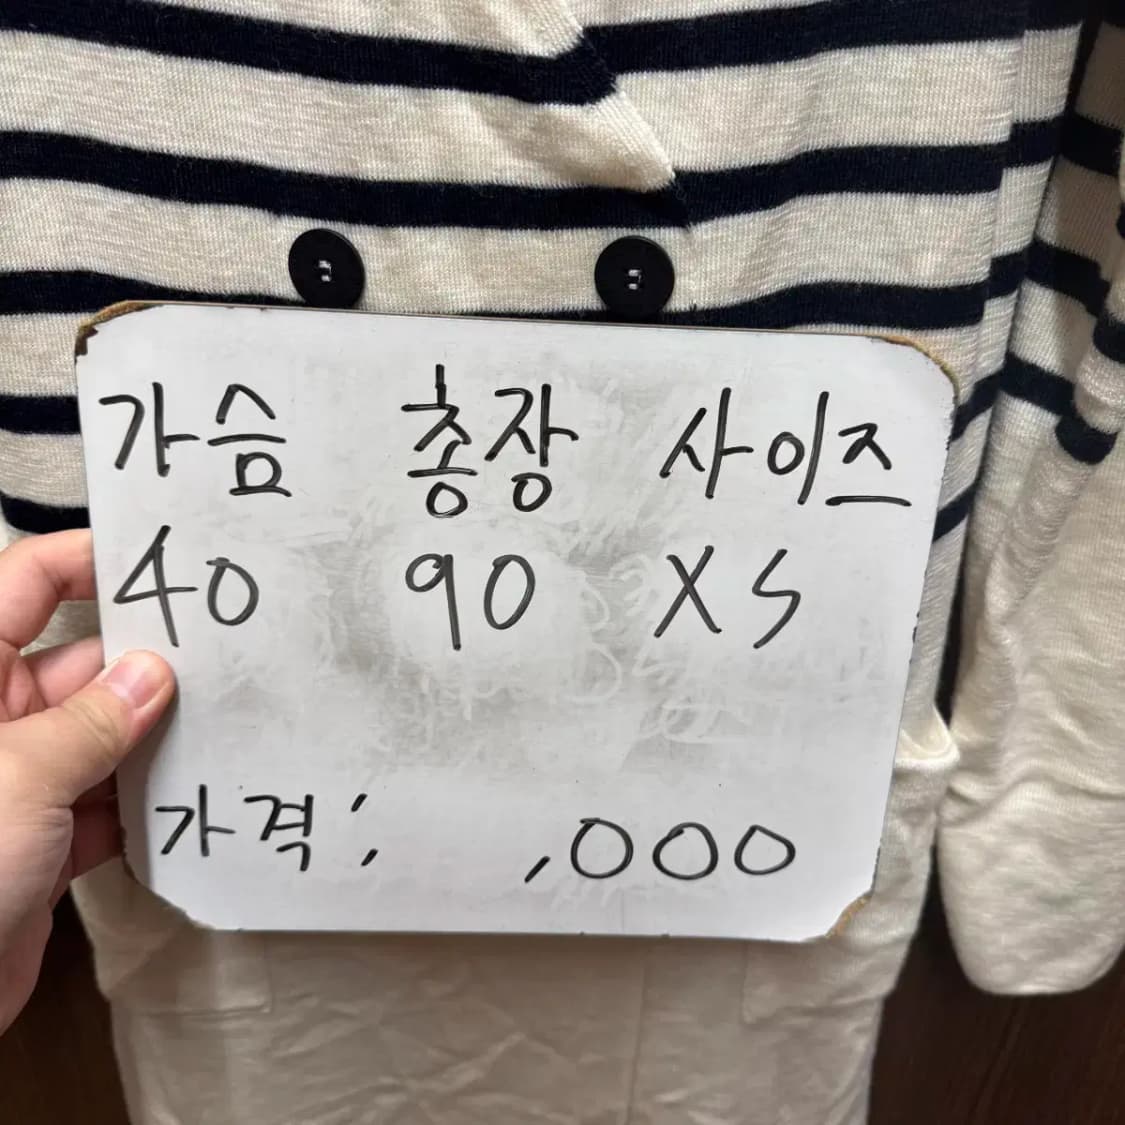 가슴 총장 사이즈
40 90 XS
가격: ,000